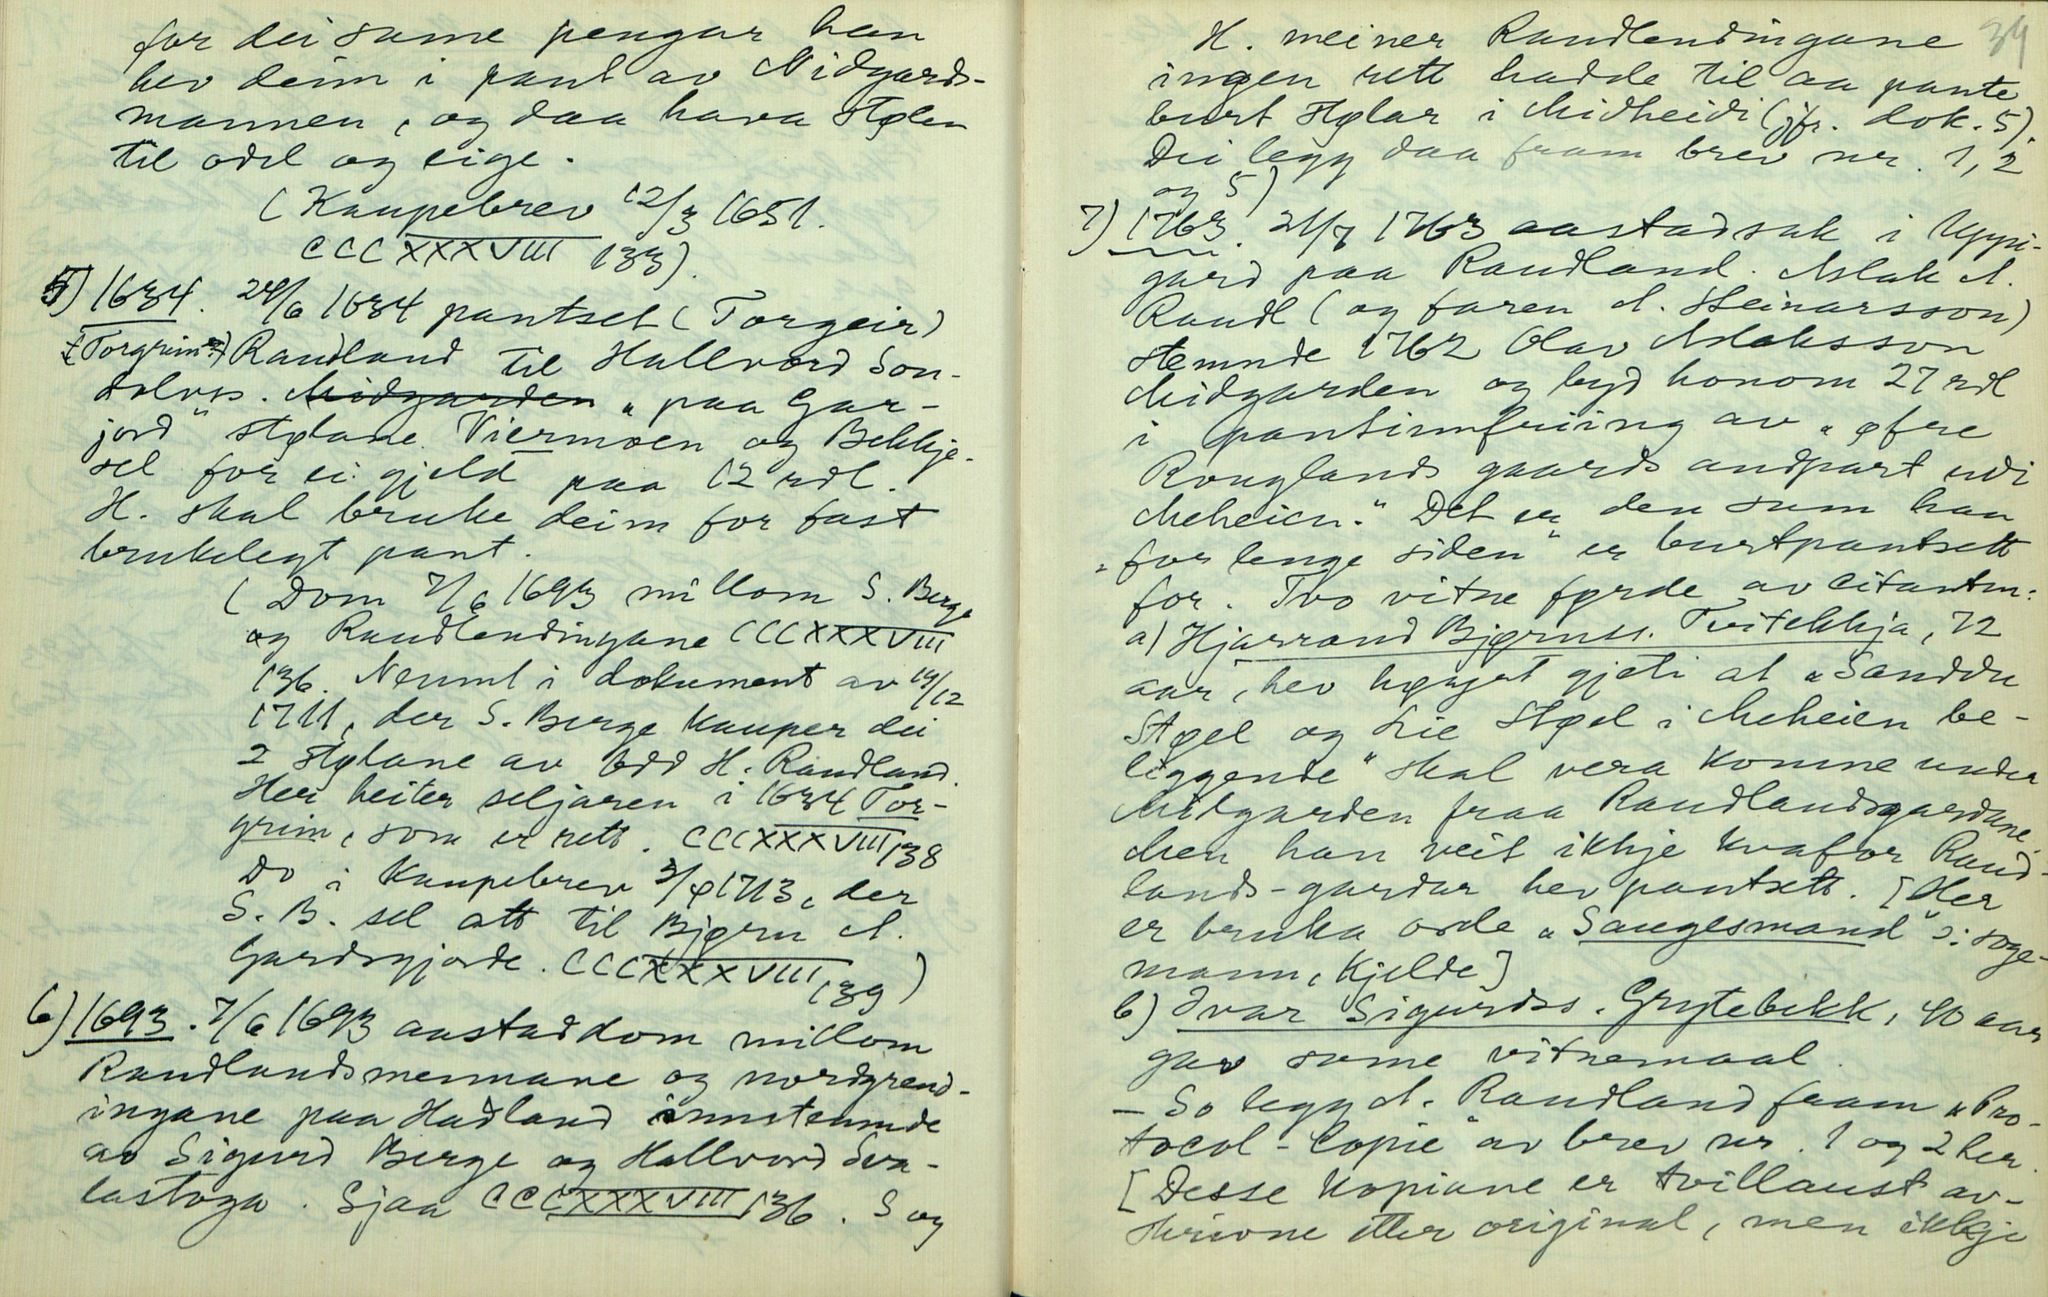 for dei same pengar han
hev deim i pant av Midgards-
mannen, og daa hava stølen
til odel og eige.
(Kaupebrev 12/3 1651.
CCCXXXVIII 133).
5) 1634. 24/6 1634 pantset (Torgeir)
(Torgrim) Raudland til Hallvord Son-
dolvss. Midgarden „paa Gar-
jord" stølane Viermoen og Bekkje-
sel for ei gjeld paa 12 rdl.
H. skal bruke deim for fast
brukelegt pant.
(Dom 7/6 1693 millom S. Berge
og Raudlendingane CCCXXXVIII
136. Nemnt i dokument av 19/12
1711, der S. Berge kauper dei
2 stølane av Odd H. Raudland.
Her heiter seljaren i 1634 Tor-
grim, som er rett. CCCXXXVIII 138
Do i Kaupebrev 3/9 1713, der
S. B. sel att til Bjørn A.
Gardsgjorde. CCCXXXVIII 139)
6) 1693. 7/6 1693 aastaddom millom
Raudlandsmennane og nordgrend-
ingane paa Hadland innstemnde
av Sigurd Berge og Hallvord Sva-
lastoga. Sjaa CCCXXXVIII 136. S og
34
H. meiner Raudlendingane
ingen rett hadde til aa pante
burt stølar i Midheidi (jfr. dok. 5).
Dei legg daa fram brev nr. 1, 2
og 5)
7) 1763. 21/7 1763 aastadsak i Uppi-
gard paa Raudland. Aslak A.
Raudl (og faren A. Steinarsson)
stemnde 1762 Olav Aslaksson
Midgarden og byd honom 27 rdl
i pantinnfriing av „øfre
Rouglands gaards andpart udi
Meheien." Det er den som han
„for lenge siden" er burtpantsett
for. Tvo vitne førde av citanten:
a) Hjarrand Bjørnss. Tveitekkja, 72
aar, hev høyrt gjeti at „Sanddu
Støel og Lie Støel i Meheien be-
liggende" skal vera komne under
Midgarden fraa Raudlandsgardane.
Men han veit ikkje kvafor Raud-
lands-gardar hev pantsett. [Her
er bruka orde „Saugesmand" ɔ: soge-
mann, kjelde]
b) Ivar Sigurdss. Grytebekk, 40 aar
gav same vitnemaal.
– So legg A. Raudland fram „Pro-
tocol-Copie" av brev nr. 1 og 2 her.
[Desse kopiane er tvillaust av-
skrivne etter original, men ikkje